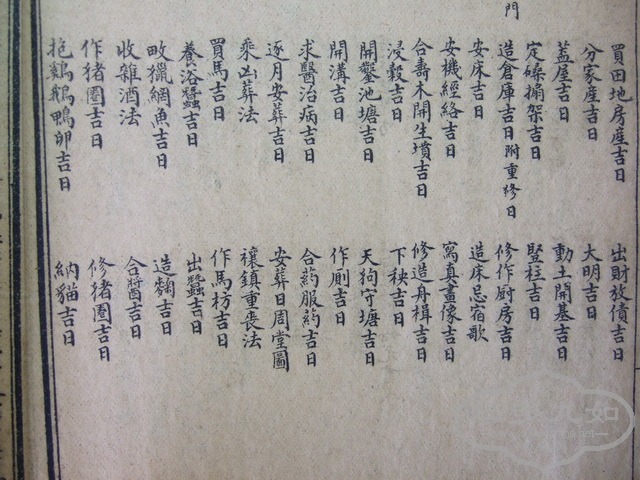 門
買田地房產吉日
分家產吉日
蓋屋吉日
定磉搧架吉日
造倉庫吉日附重修日
安床吉日
安機經絡吉日
合壽木開生墳吉日
浸穀吉日
開鑿池塘吉日
開溝吉日
求醫治病吉日
逐月安葬吉日
乘凶葬法
買馬吉日
養浴蠶吉日
畋獵網魚吉日
收雜酒法
作猪圈吉日
抱鷄鵝鴨卵吉日
出財放債吉日
大明吉日
動土開基吉日
竪柱吉日
修作厨房吉日
造床忌宿歌
寫真畫像吉日
修造舟楫吉日
下秧吉日
天狗守塘吉日
作厠吉日
合药服药吉日
安葬日周堂圖
禳鎮重喪法
作馬枋吉日
出蠶吉日
造麯吉日
合醬吉日
修猪圈吉日
納貓吉日
九如